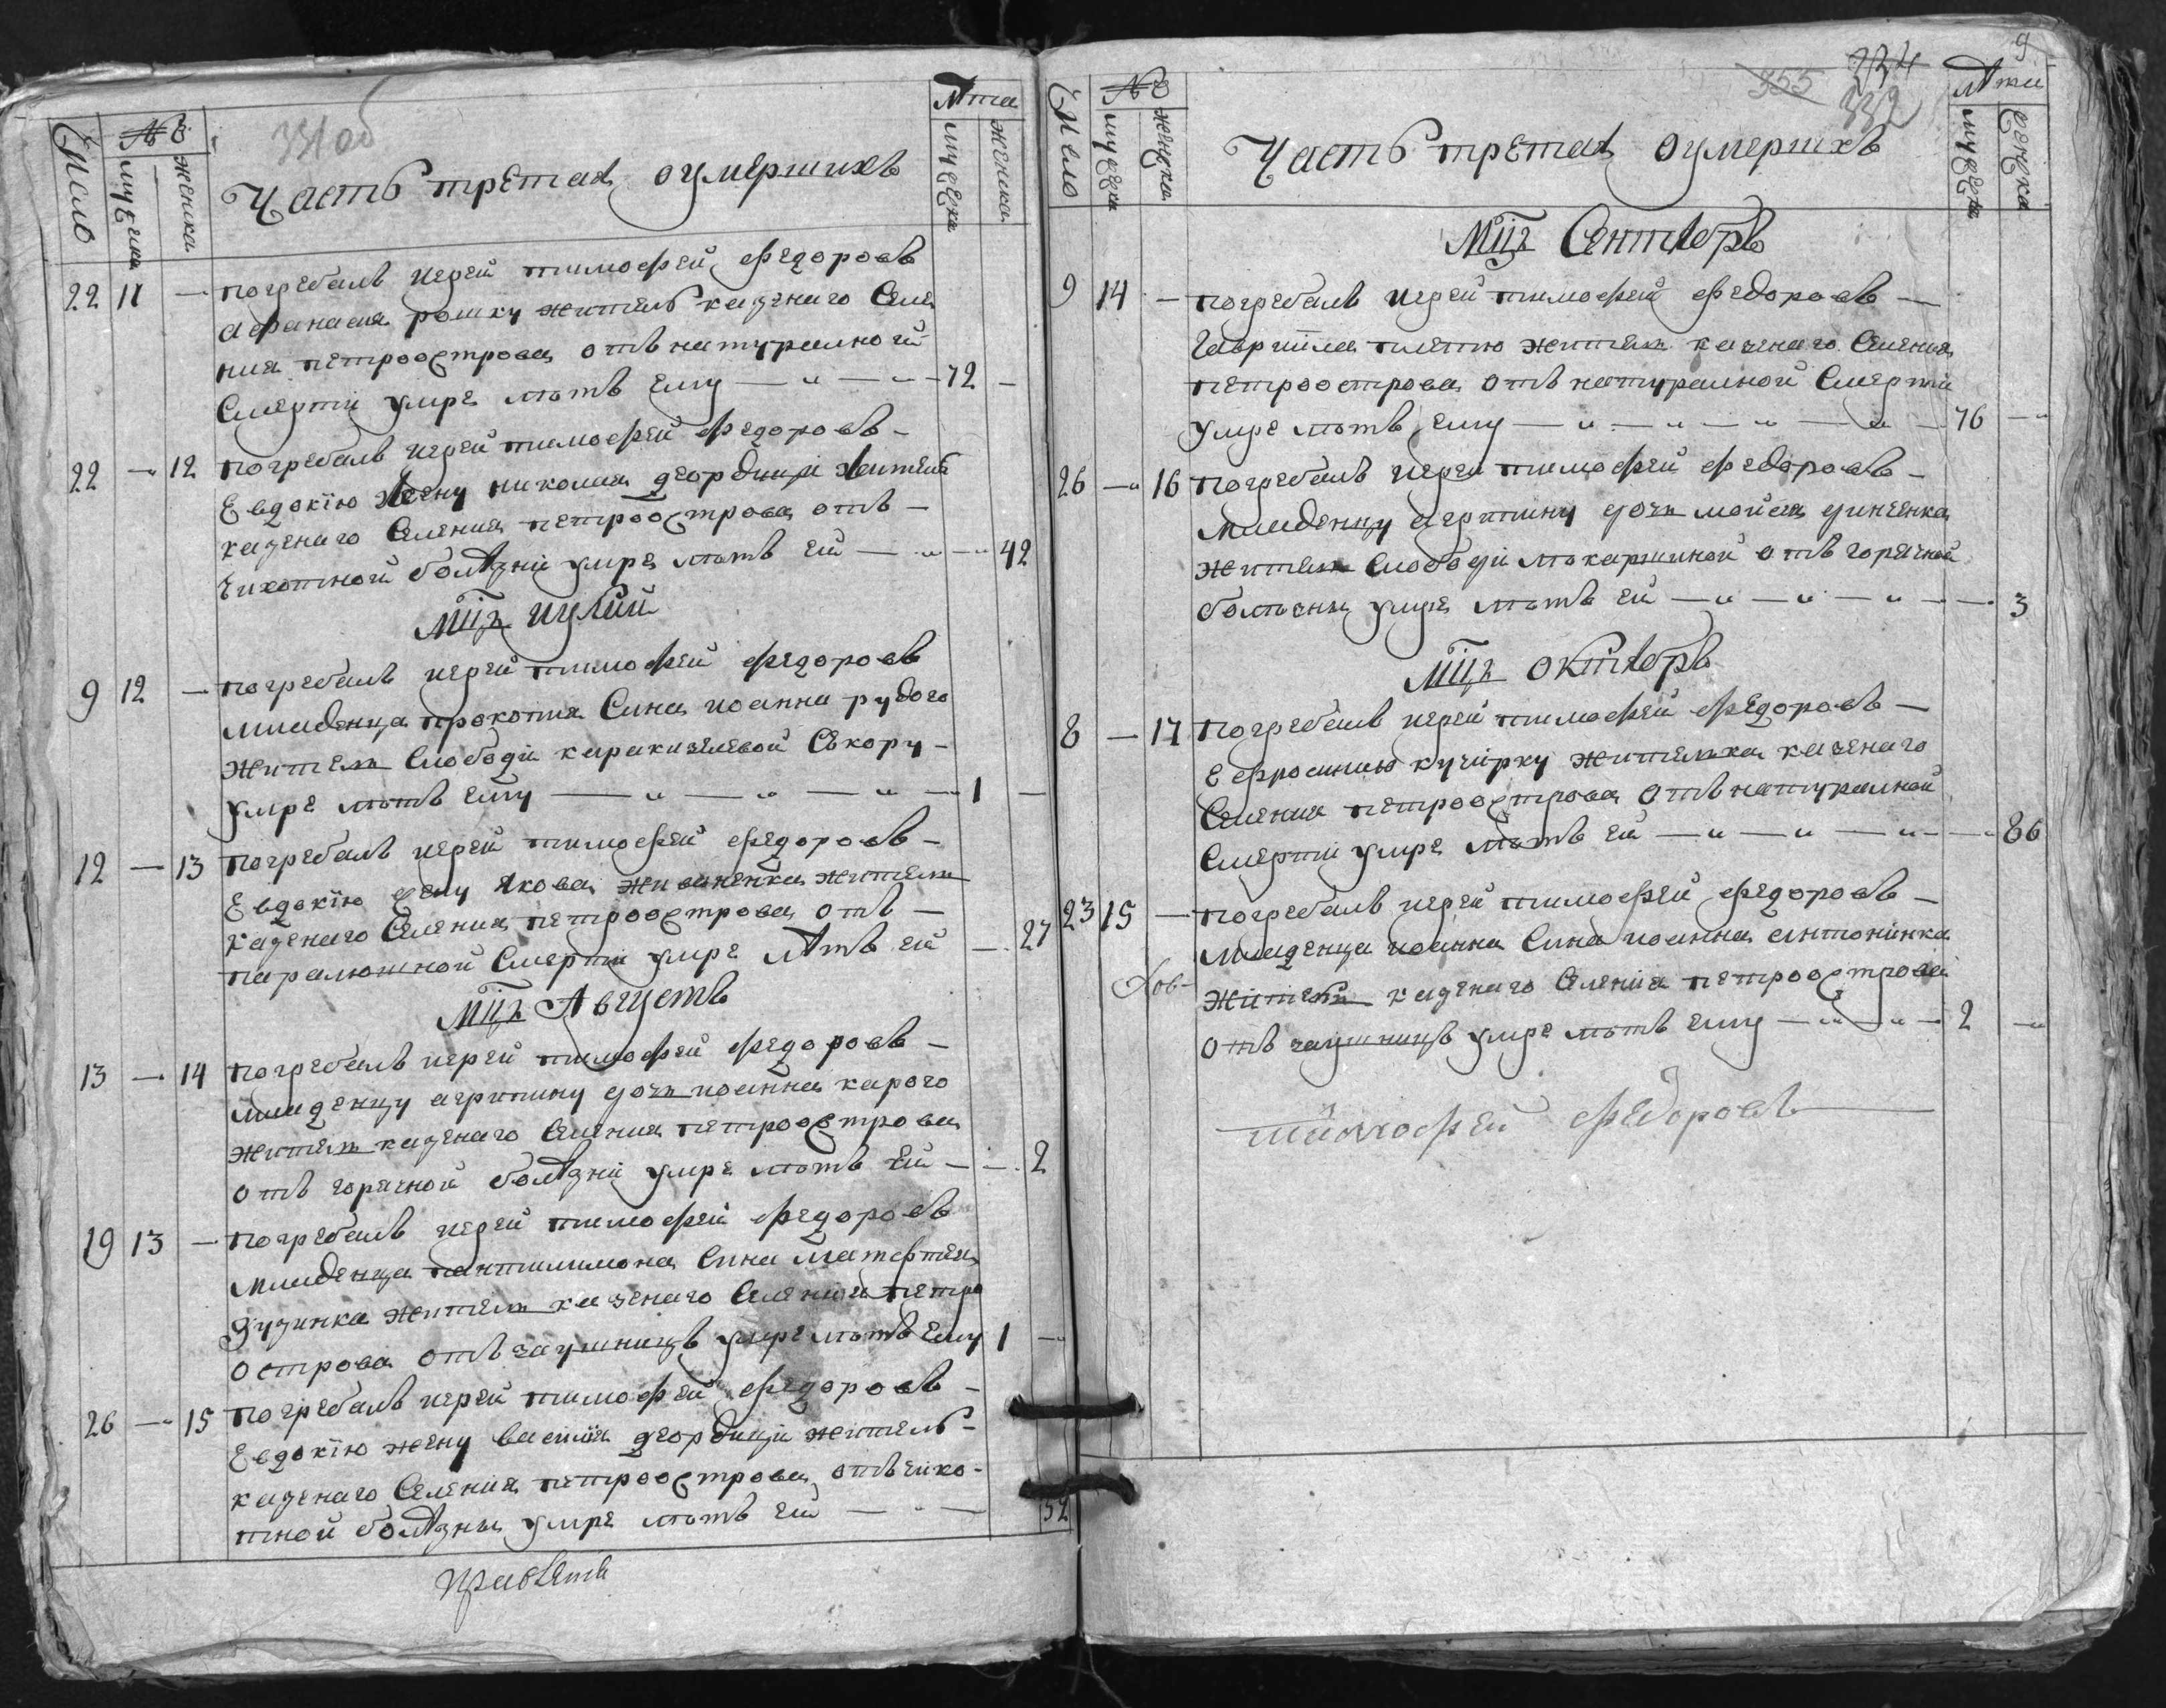 331об
Число
№
мужеска
женска
Часть третая оумершихъ
лѣта
мужеска
женска
22 11 — погребалъ иерей тимофей федоровъ
афанасия рошку житель казенаго Селе
ния петроострова отъ натуралной
Смерти умре лѣтъ ему — " — " — 72 —
22 — 12 погребалъ иерей тимофей федоровъ —
Евдокїю жену николая георгици жителя
казенаго Селения петроострова отъ —
чихотной болѣзни умре лѣтъ ей — " — " 42
Мцъ иулий
9 12 — погребалъ иерей тимофей федоровъ
младенца прокопия Сина иоанна рудого
жителя Слободи каракизелевой Скору —
умре лѣтъ ему — " — " — " — 1 —
12 — 13 погребалъ иерей тимофей федоровъ —
Евдокїю жену якова живаненка жителя
казенаго Селения петроострова отъ —
паралюшной Смерти умре лѣтъ ей — 27
Мцъ Августъ
13 — 14 погребалъ иерей тимофей федоровъ —
младенцу агрипину дочъ иоанна карого
жителя казенаго Селения петроострова
отъ горячной болѣзни умре лѣтъ ей — — 2
19 13 — погребалъ иерей тимофей федоровъ
младенца пантилимона Сина
зузинка жителя казенаго Селения петро
острова отъ заушницъ умре лѣтъ ему 1 —
26 — 15 погребалъ иерей тимофей федоровъ —
Евдокїю жену василїя георгици жителъ —
казенаго Селения петроострова отъ чихо-
тной болѣзны умре лѣтъ ей — " — 52
9
355 334
332
Число
№
мужеска
женска
Часть третая оумершхъ
лѣта
мужеска
женска
Мцъ Сентябрь
9 14 — погребалъ иерей тимофей федоровъ —
Гавриїла жителя казенаго Селения
петроострова отъ натуралной Смерти
умре лѣтъ ему — " — " — " — " — 76 —
26 — 16 погребалъ иерей тимофей федоровъ —
младенцу агрипину дочь мойсея
жителя Слободи отъ горячной
болѣзни умре лѣтъ ей — " — " — " — — 3
Мцъ октябрь
8 — 17 погребалъ иерей тимофей федоровъ —
Ефросинию кучірку жителька казенаго
Селения петроострова отъ натуралной
Смерти умре лѣтъ ей — " — " — " — — 86
23 15 — погребалъ иерей тимофей федоровъ —
младенца иоанна Сина иоанна антонинка
жителя казенаго Селения петроострова
отъ заушницъ умре лѣтъ ему — " — " — 2 —
тимофей федоровъ